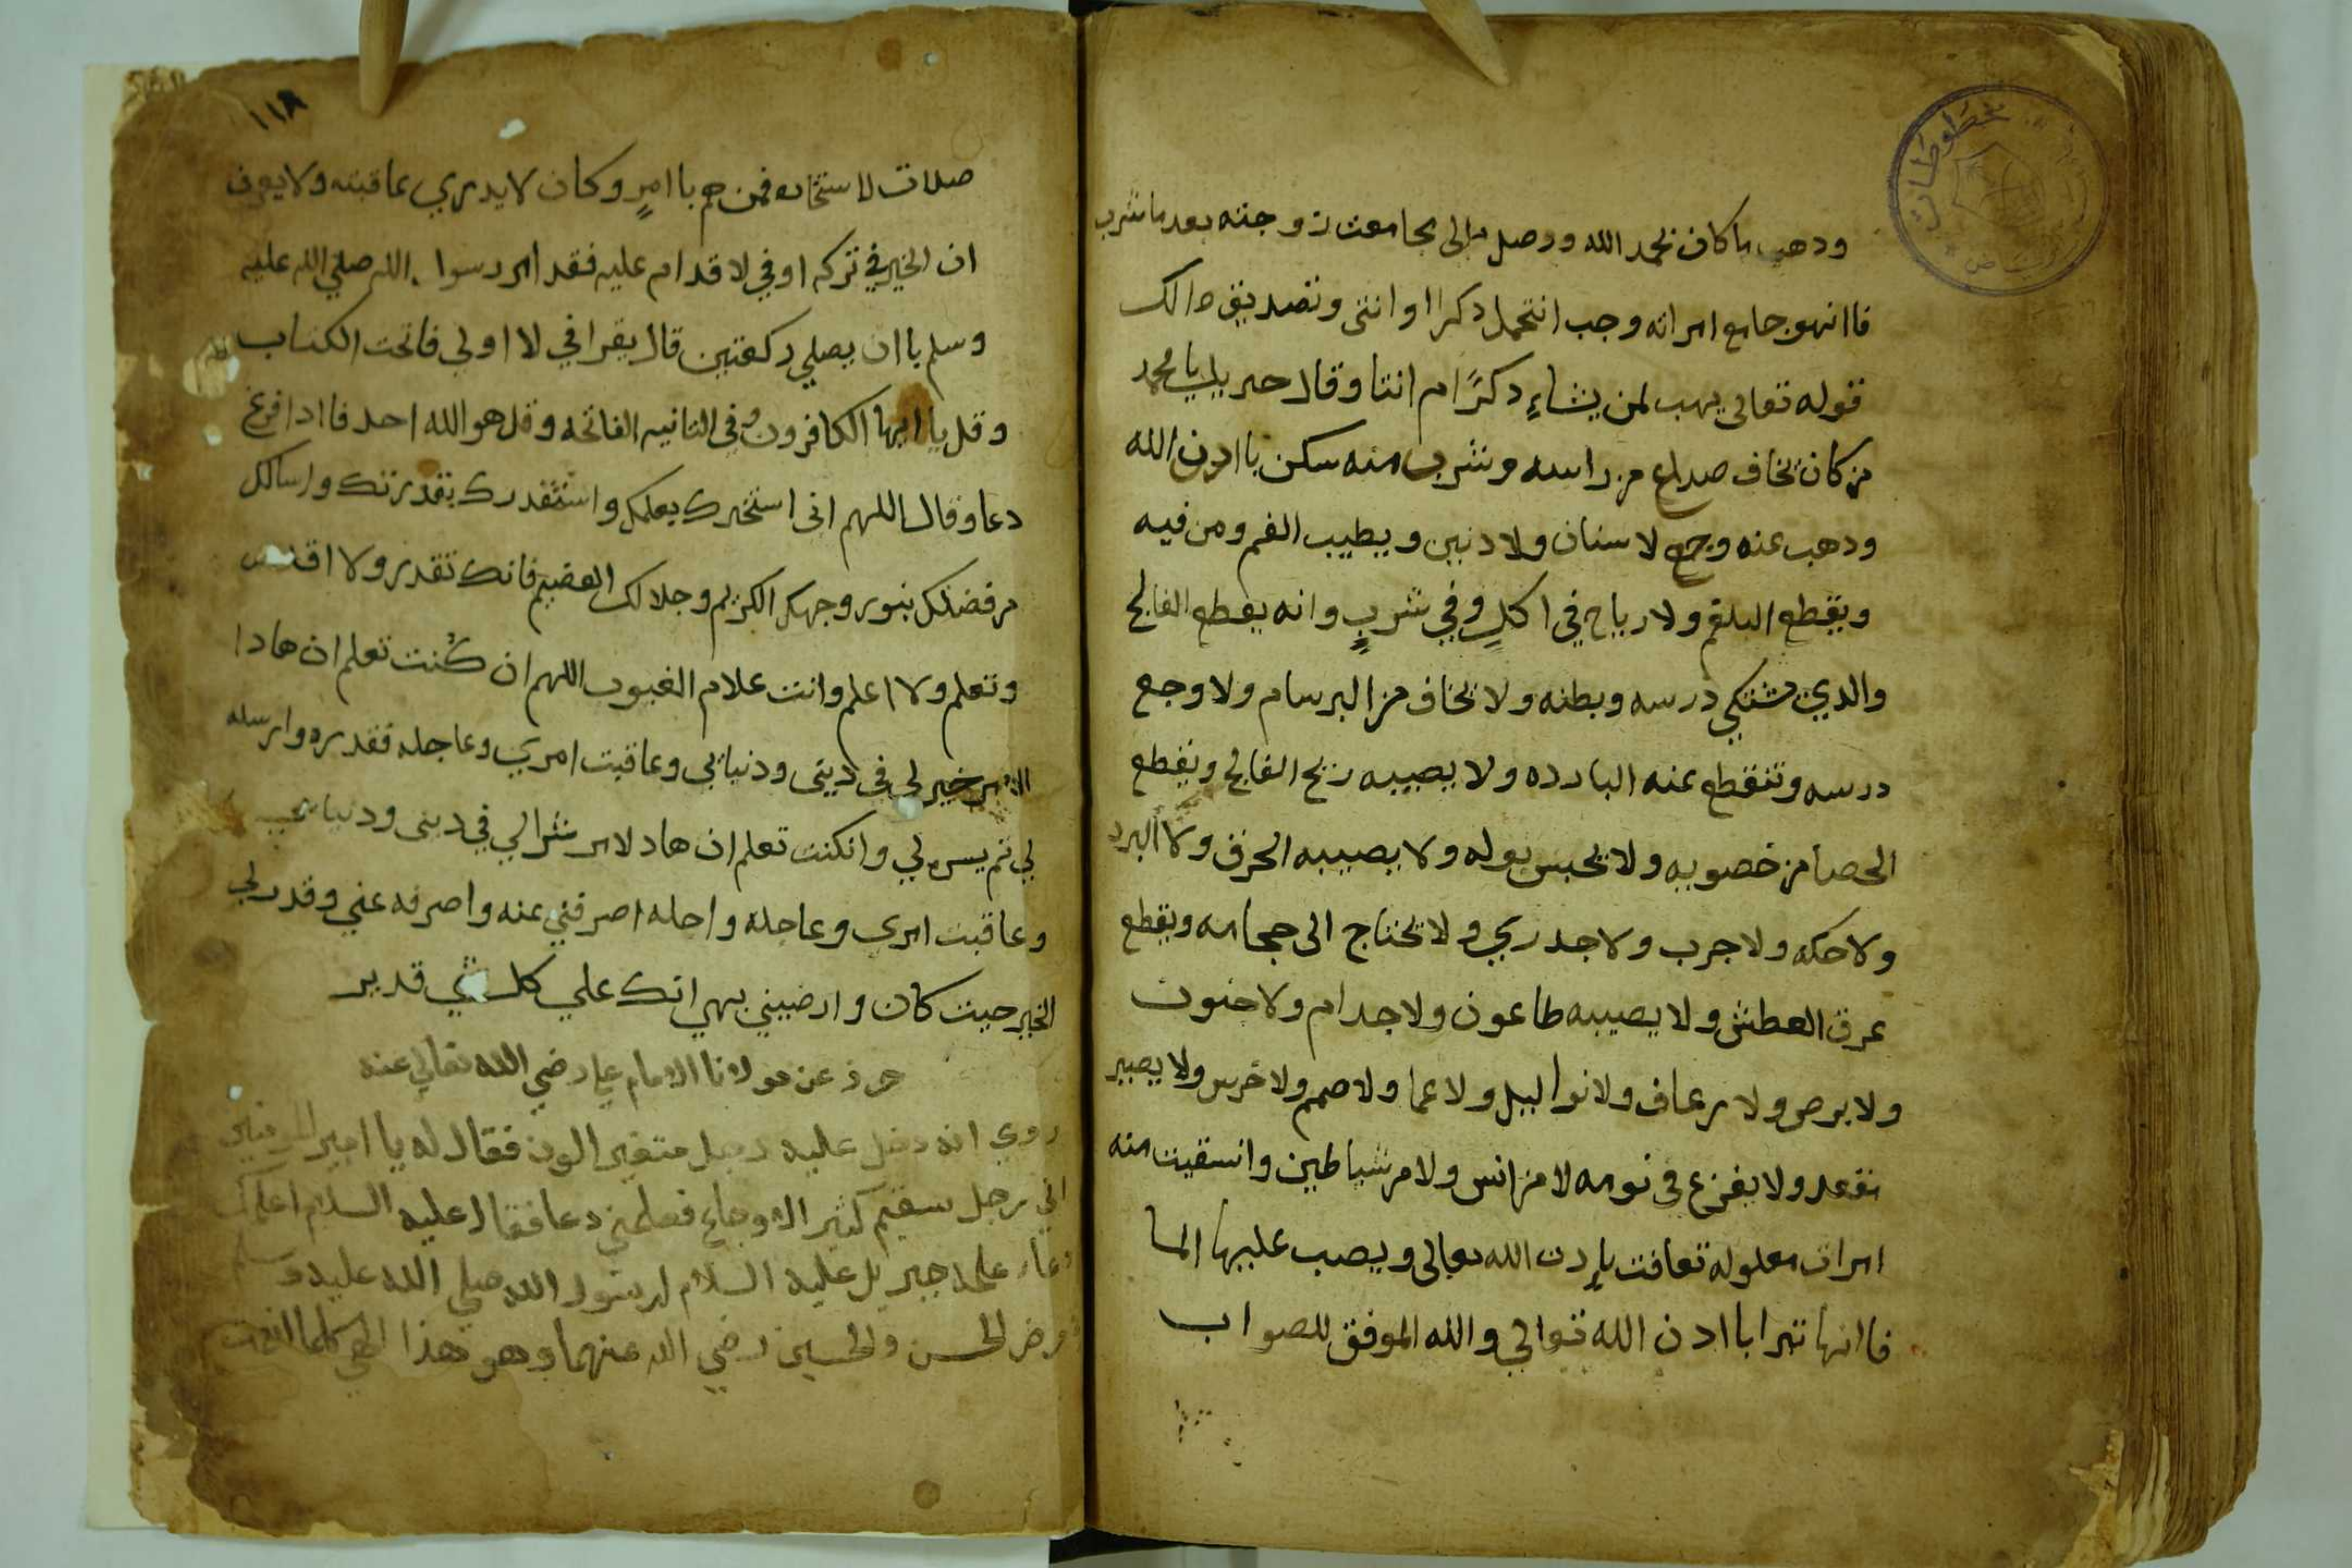 مخطوطات
ودهب ما كان نحمد الله ووصل الى مجامعت زوجته بعد ما شرب
فاانهو جامع امراته وجب انتحمل دكرا او انتى وتصديق دالك
قوله تعالى يهب لمن يشاء دكرًا ام انتا وقال جبريل يا محمد
من كان يخاف صداع من راسه وشرب منه سكن باادن الله
ودهب عنه وجع لاسنان ولادنين ويطيب الفم ومن فيه
ويقطع البلقم ولارياح في اكلٍ وفي شربٍ وانه يقطع الفالج
والدي يشتكي درسه وبطنه ولا يخاف من البرسام ولا وجع
درسه وتنقطع عنه البارده ولا يصيبه ريح الفالج ويقطع
الحصا من خصويه ولا يحبس بوله ولا يصيبه الحرق ولا البرد
ولا حكه ولا جرب ولا جدري ولا يحتاج الى حجامه ويقطع
عرق العطش ولا يصيبه طاعون ولا جدام ولا جنون
ولا برص ولا رعاف ولا نوا ليل ولا عما ولا صمم ولا خرس ولا يصير
مقعد ولا يفزع في نومه لا من انس ولا من شياطين وانسقيت منه
امرات معلوله تعافت بإدن الله تعالى ويصب عليها الما
فاانها تبرا باادن الله توالي والله الموفق للصواب
١١٨
صلات لاستخاره فمن هم باامرٍ وكان لا يدري عاقبته ولا يعرف
ان الخير في تركه او في لاقدام عليه فقد امر رسول الله صلي الله عليه
وسلم باان يصلي ركعتين قال يقرا في لااولي فاتحت الكتاب
وقل يا ايها الكافرون وفي التانيه الفاتحه وقل هو الله احد فاادا فرغ
دعا وقال اللهم اني استخيرك بعلمك واستقدرك بقدرتك واسالك
من فضلك بنور وجهك الكريم وجلالك العضيم فانك تقدر ولا اقدر
وتعلم ولا اعلم وانت علام الغيوب اللهم ان كُنت تعلم ان هادا
الامر خير لي في ديني ودنيايي وعاقبت امري وعاجله فقدره وارسله
لي تم يسره لي وانكنت تعلم ان هاد لامر شرالي في ديني ودنيايي
وعاقبت امري وعاجله واجله اصرفني عنه واصرفه عني وقدرلي
الخير حيت كان وارضيني بهي انك علي كل شي قدير
حرز عن مولانا الامام علي رضي الله تعالي عنه
روي انه دخل عليه رجل متغير الون فقال له يا امير المومنين
اني رجل سقيم كثير الاوجاع فعلمني دعا فقال عليه السلام اعلمك
دعاء علمه جبريل عليه السلام لرسول الله صلي الله عليه وسلم
في مرض الحسن والحسين رضي الله عنهما وهو هذا الهي كلما انعمت